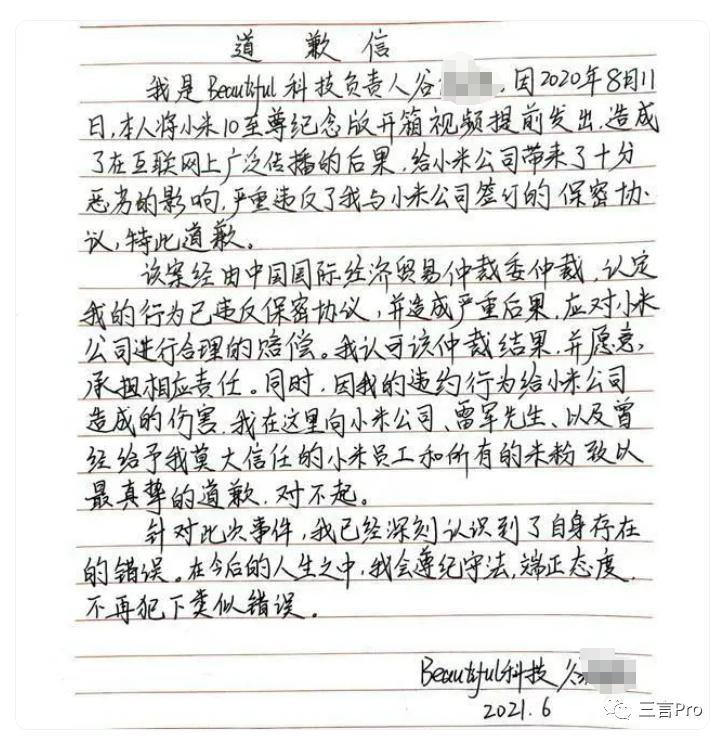 道 歉 信
我是Beautiful科技负责人谷 ,因2020年8月11
日,本人将小米10至尊纪念版开箱视频提前发出,造成
了在互联网上广泛传播的后果,给小米公司带来了十分
恶劣的影响,严重违反了我与小米公司签订的保密协
议,特此道歉。
该案经由中国国际经济贸易仲裁委仲裁,认定
我的行为已违反保密协议,并造成严重后果,应对小米
公司进行合理的赔偿。我认可该仲裁结果,并愿意
承担相应责任。同时,因我的违约行为给小米公司
造成的伤害,我在这里向小米公司、雷军先生、以及曾
经给予我莫大信任的小米员工和所有的米粉致以
最真挚的道歉,对不起。
针对此次事件,我已经深刻认识到了自身存在
的错误。在今后的人生之中,我会遵纪守法,端正态度,
不再犯下类似错误。
Beautiful科技 谷
2021.6
三言Pro